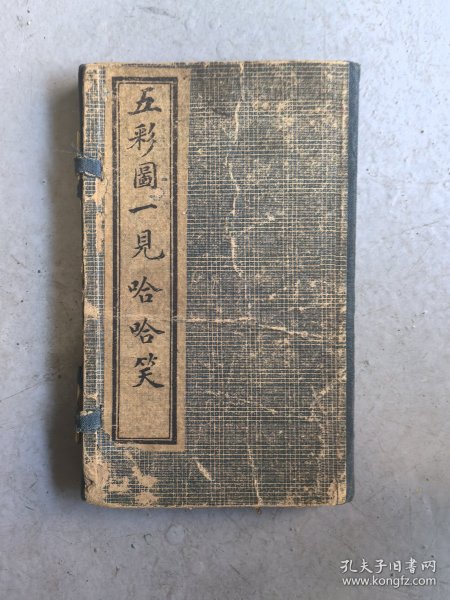 五彩圖一見哈哈笑
孔夫子旧书网
www.kongfz.com